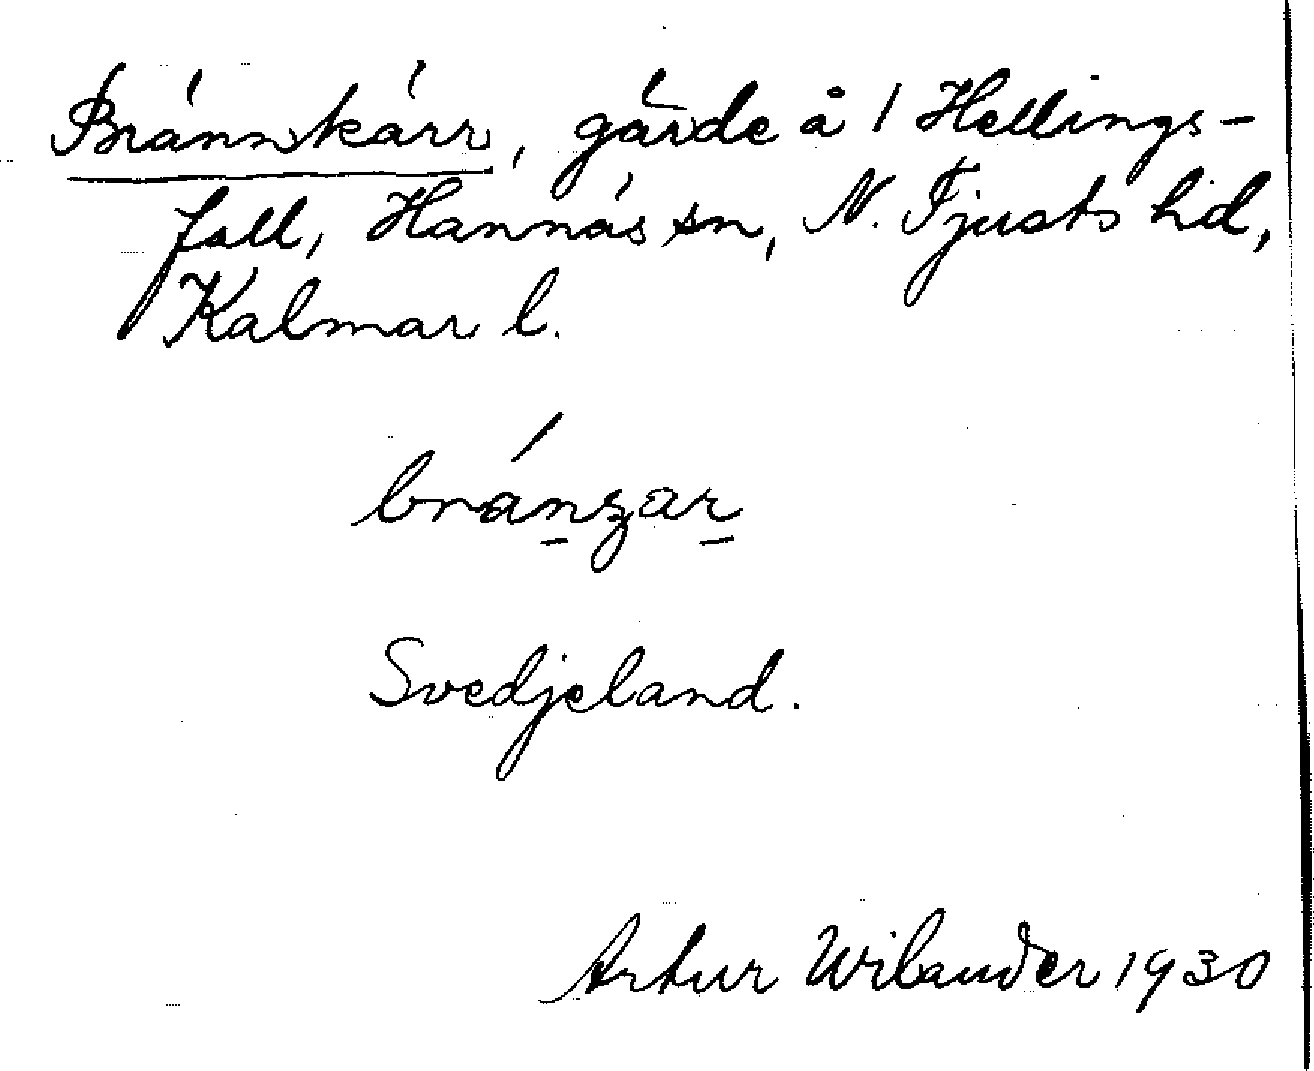 Brännkärr, gärde å 1 Hellings-
fall, Hannäs sn, N. Tjusts hd,
Kalmar l.
bränzar
Svedjeland.
Artur Wilander 1930